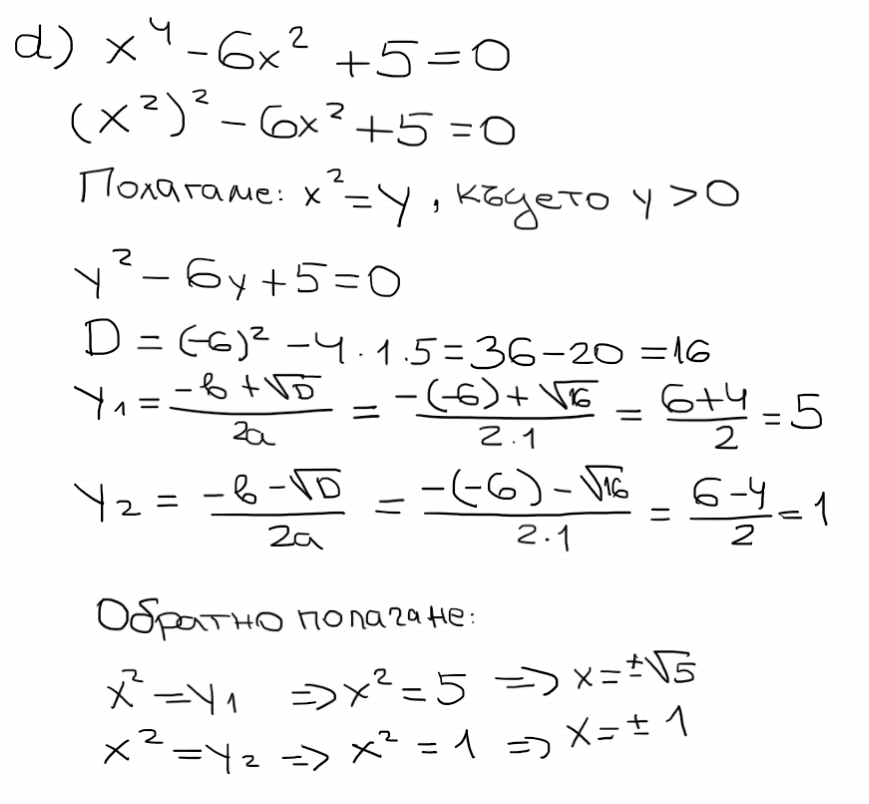 d) x⁴ - 6x² + 5 = 0
(x²)² - 6x² + 5 = 0
Полагаме: x² = y, където y > 0
y² - 6y + 5 = 0
D = (-6)² - 4 · 1 . 5 = 36 - 20 = 16
y₁ = (-b + √D)/(2a) = (-(-6) + √16)/(2.1) = (6+4)/2 = 5
y₂ = (-b - √D)/(2a) = (-(-6) - √16)/(2.1) = (6-4)/2 = 1
Обратно полагане:
x² = y₁ => x² = 5 => x = ±√5
x² = y₂ => x² = 1 => x = ± 1